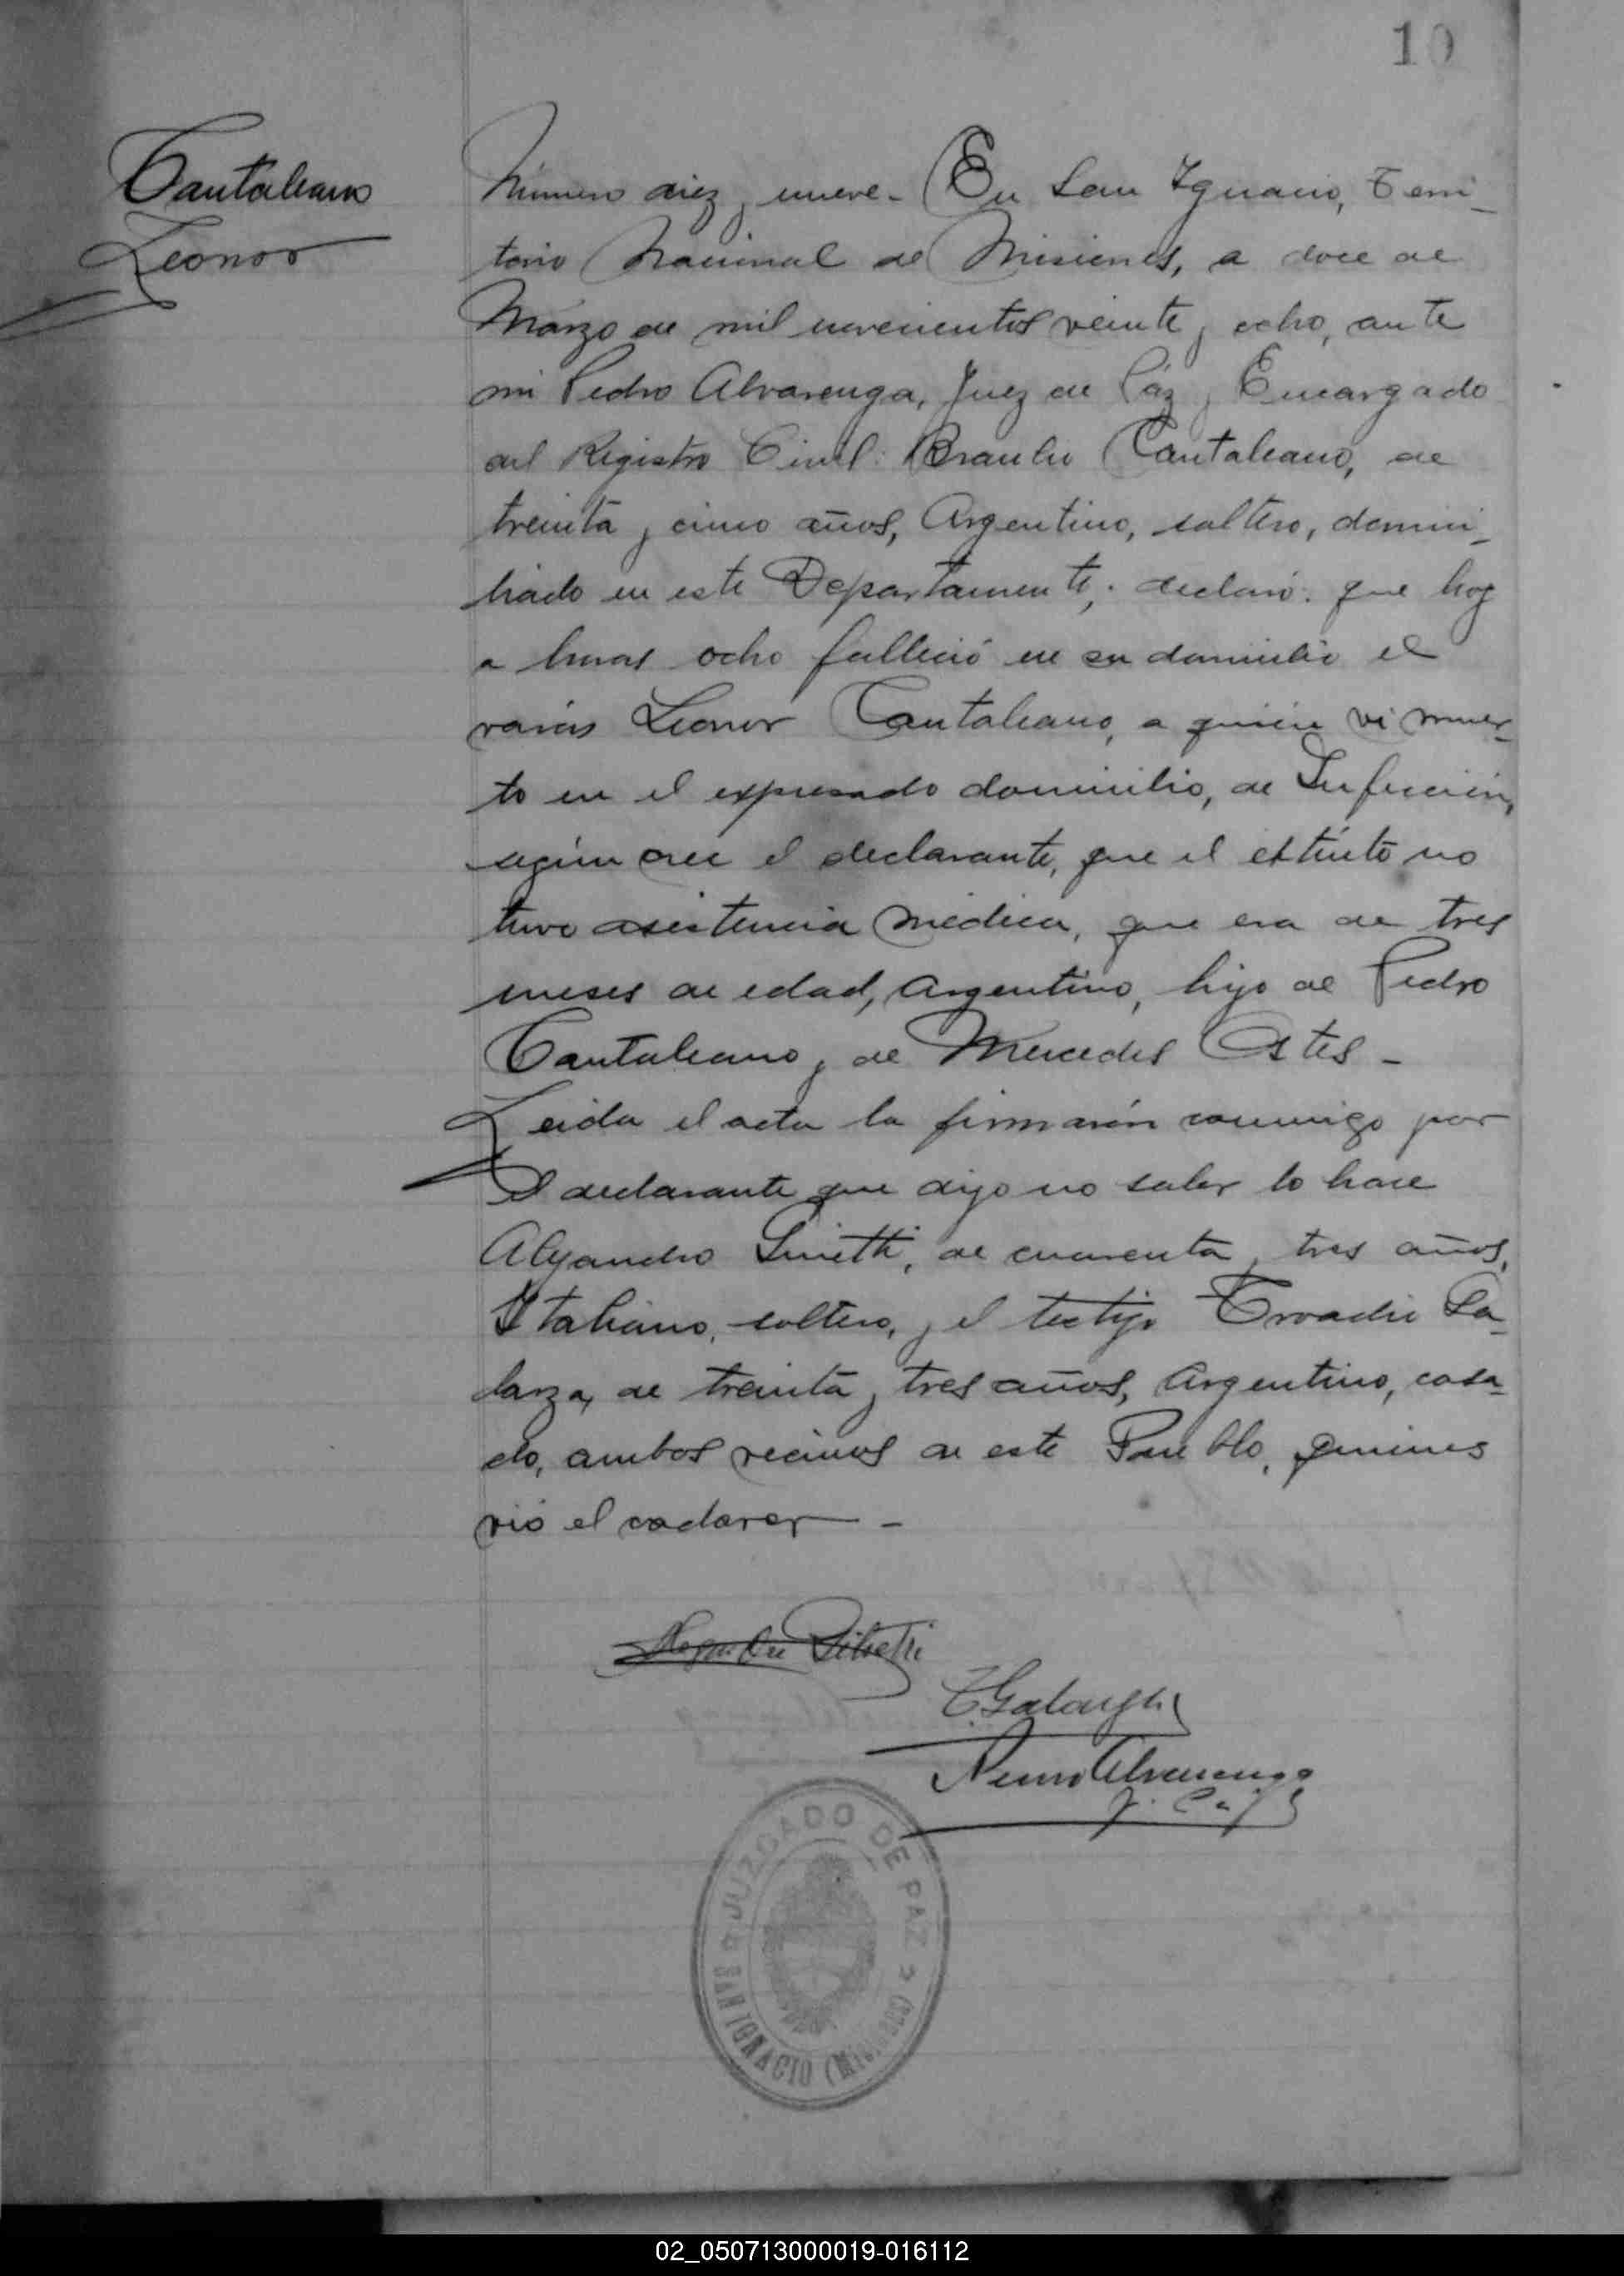 10
Cantaleano
Leonor
Número diez y nueve.- En San Ignacio, Terri-
torio Nacional de Misiones, a doce de
Marzo de mil novecientos veinte y ocho, ante
mi Pedro Alvarenga, Juez de Páz y Encargado
del Registro Civil: Braulio Cantaleano, de
treinta y cinco años, Argentino, soltero, domici-
liado en este Departamento; declaró: que hoy
a horas ocho falleció en su domicilio el
varón Leonor Cantaleano, a quién vi muer-
to en el expresado domicilio, de Infección,
según cree el declarante, que el extinto no
tuvo asistencia médica, que era de tres
meses de edad, Argentino, hijo de Pedro
Cantaleano y de Mercedes
Leida el acta la firmarón conmigo por
el declarante que dijo no saber lo hace
Alejandro de cuarenta y tres años,
Italiano, soltero, y el testigo Troadio Ga-
larza, de treinta y tres años, Argentino, casa-
do, ambos vecinos de este Pueblo, quienes
vió el cadaver-
T Galarza
Pedro Alvarenga
JUZGADO DE PAZ
SAN IGNACIO (Misiones)
02_050713000019-016112